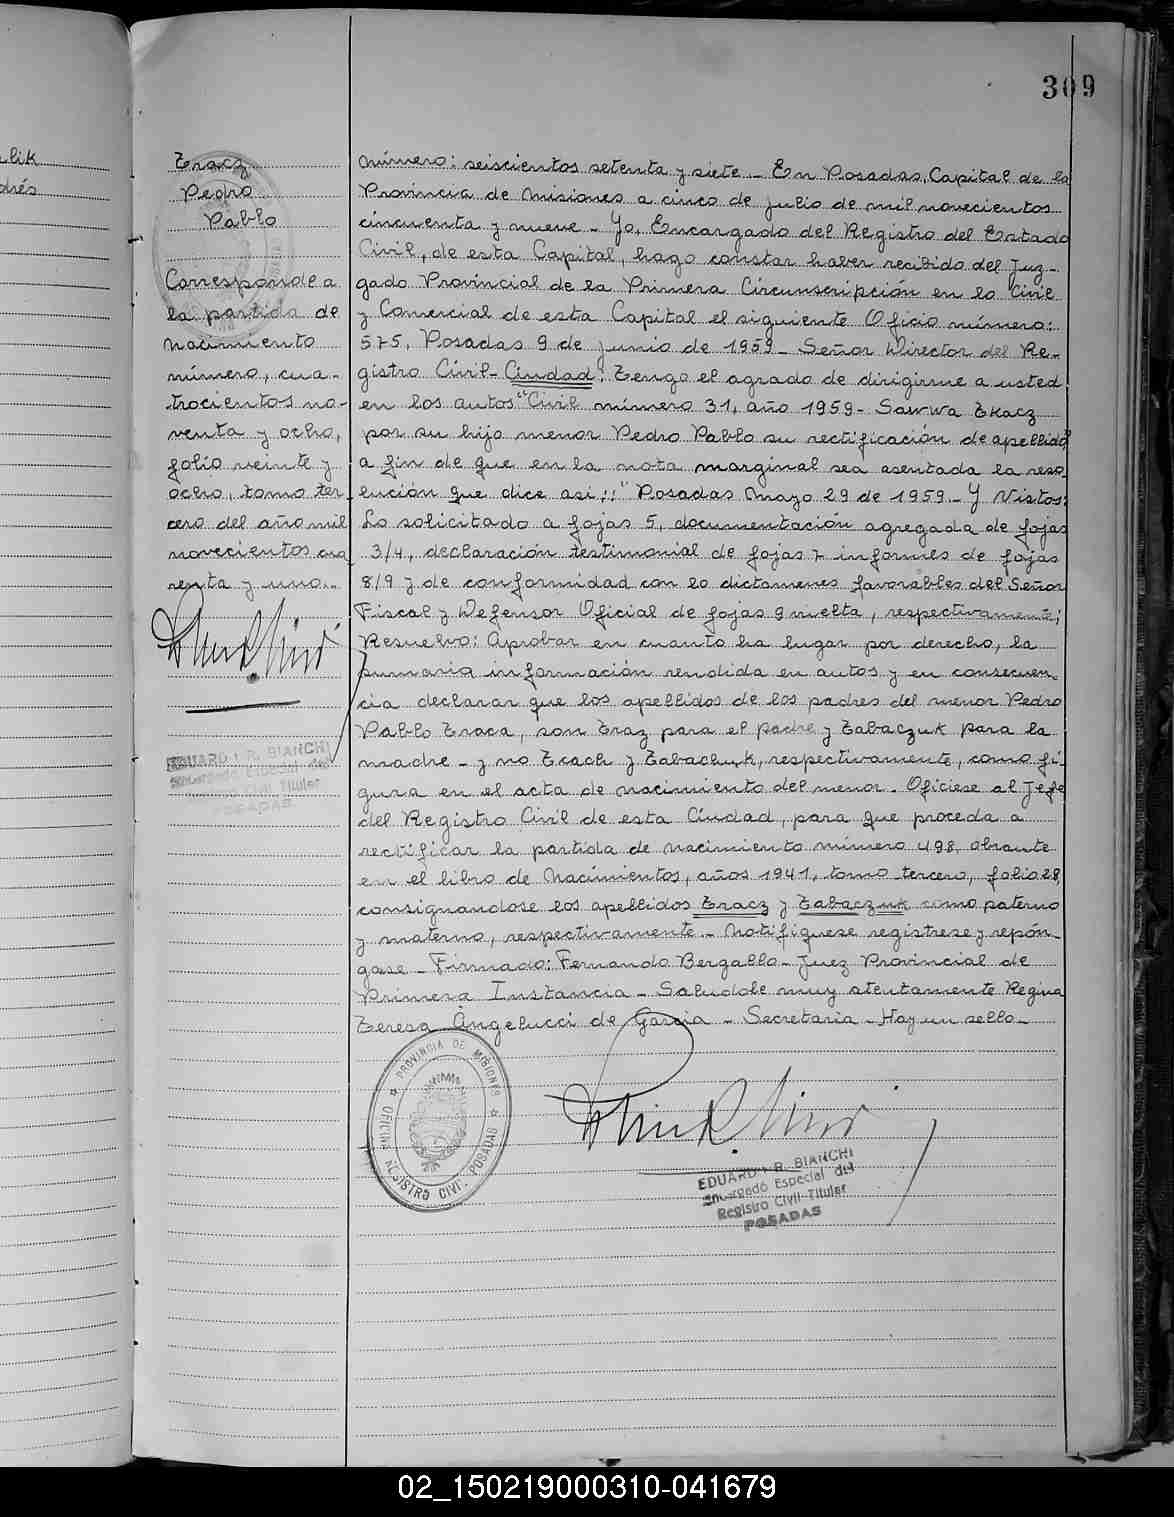 309
lik
drés
Tracz
Pedro
Pablo
Corresponde a
la partida de
nacimiento
número, cua-
trocientos no-
venta y ocho,
folio veinte y
ocho, tomo ter-
cero del año mil
novecientos cua
renta y uno.-
EDUARDO R. BIANCHI
Encargado Especial del
Registro Civil Titular
POSADAS
Número: seiscientos setenta y siete - En Posadas, Capital de la
Provincia de Misiones a cinco de julio de mil novecientos
cincuenta y nueve - Yo, Encargado del Registro del Estado
Civil, de esta Capital, hago constar haber recibido del Juz-
gado Provincial de la Primera Circunscripción en lo Civil
y Comercial de esta Capital el siguiente Oficio número:
575, Posadas 9 de junio de 1959 - Señor Director del Re-
gistro Civil - Ciudad: Tengo el agrado de dirigirme a usted
en los autos "Civil número 31, año 1959 - Sawwa Tkacz
por su hijo menor Pedro Pablo su rectificación de apellido"
a fin de que en la nota marginal sea asentada la reso
lución que dice así: !! "Posadas Mayo 29 de 1959.- Y Vistos:
Lo solicitado a fojas 5, documentación agregada de fojas
3/4, declaración testimonial de fojas 7 informes de fojas
8/9 y de conformidad con lo dictamenes favorables del Señor
Fiscal y Defensor Oficial de fojas 9 vuelta, respectivamente;
Resuelvo: Aprobar en cuanto ha lugar por derecho, la
sumaria información rendida en autos y en consecuen-
cia declarar que los apellidos de los padres del menor Pedro
Pablo Traca, son Traz para el padre y Tabaczuk para la
madre - y no Tcach y Tabachuk, respectivamente, como fi-
gura en el acta de nacimiento del menor. Ofíciese al Jefe
del Registro Civil de esta Ciudad, para que proceda a
rectificar la partida de nacimiento número 498, obrante
en el libro de Nacimientos, años 1941, tomo tercero, folio 28,
consignandose los apellidos Tracz y Tabaczuk como paterno
y materno, respectivamente.- Notifiquese registrese y repón-
gase - Firmado: Fernando Bergallo - Juez Provincial de
Primera Instancia - Saludole muy atentamente Regina
Teresa Angelucci de Garcia - Secretaria - Hay un sello -
PROVINCIA DE MISIONES
OFICINA REGISTRO CIVIL POSADAS
EDUARDO R. BIANCHI
Encargado Especial del
Registro Civil Titular
POSADAS
02_150219000310-041679